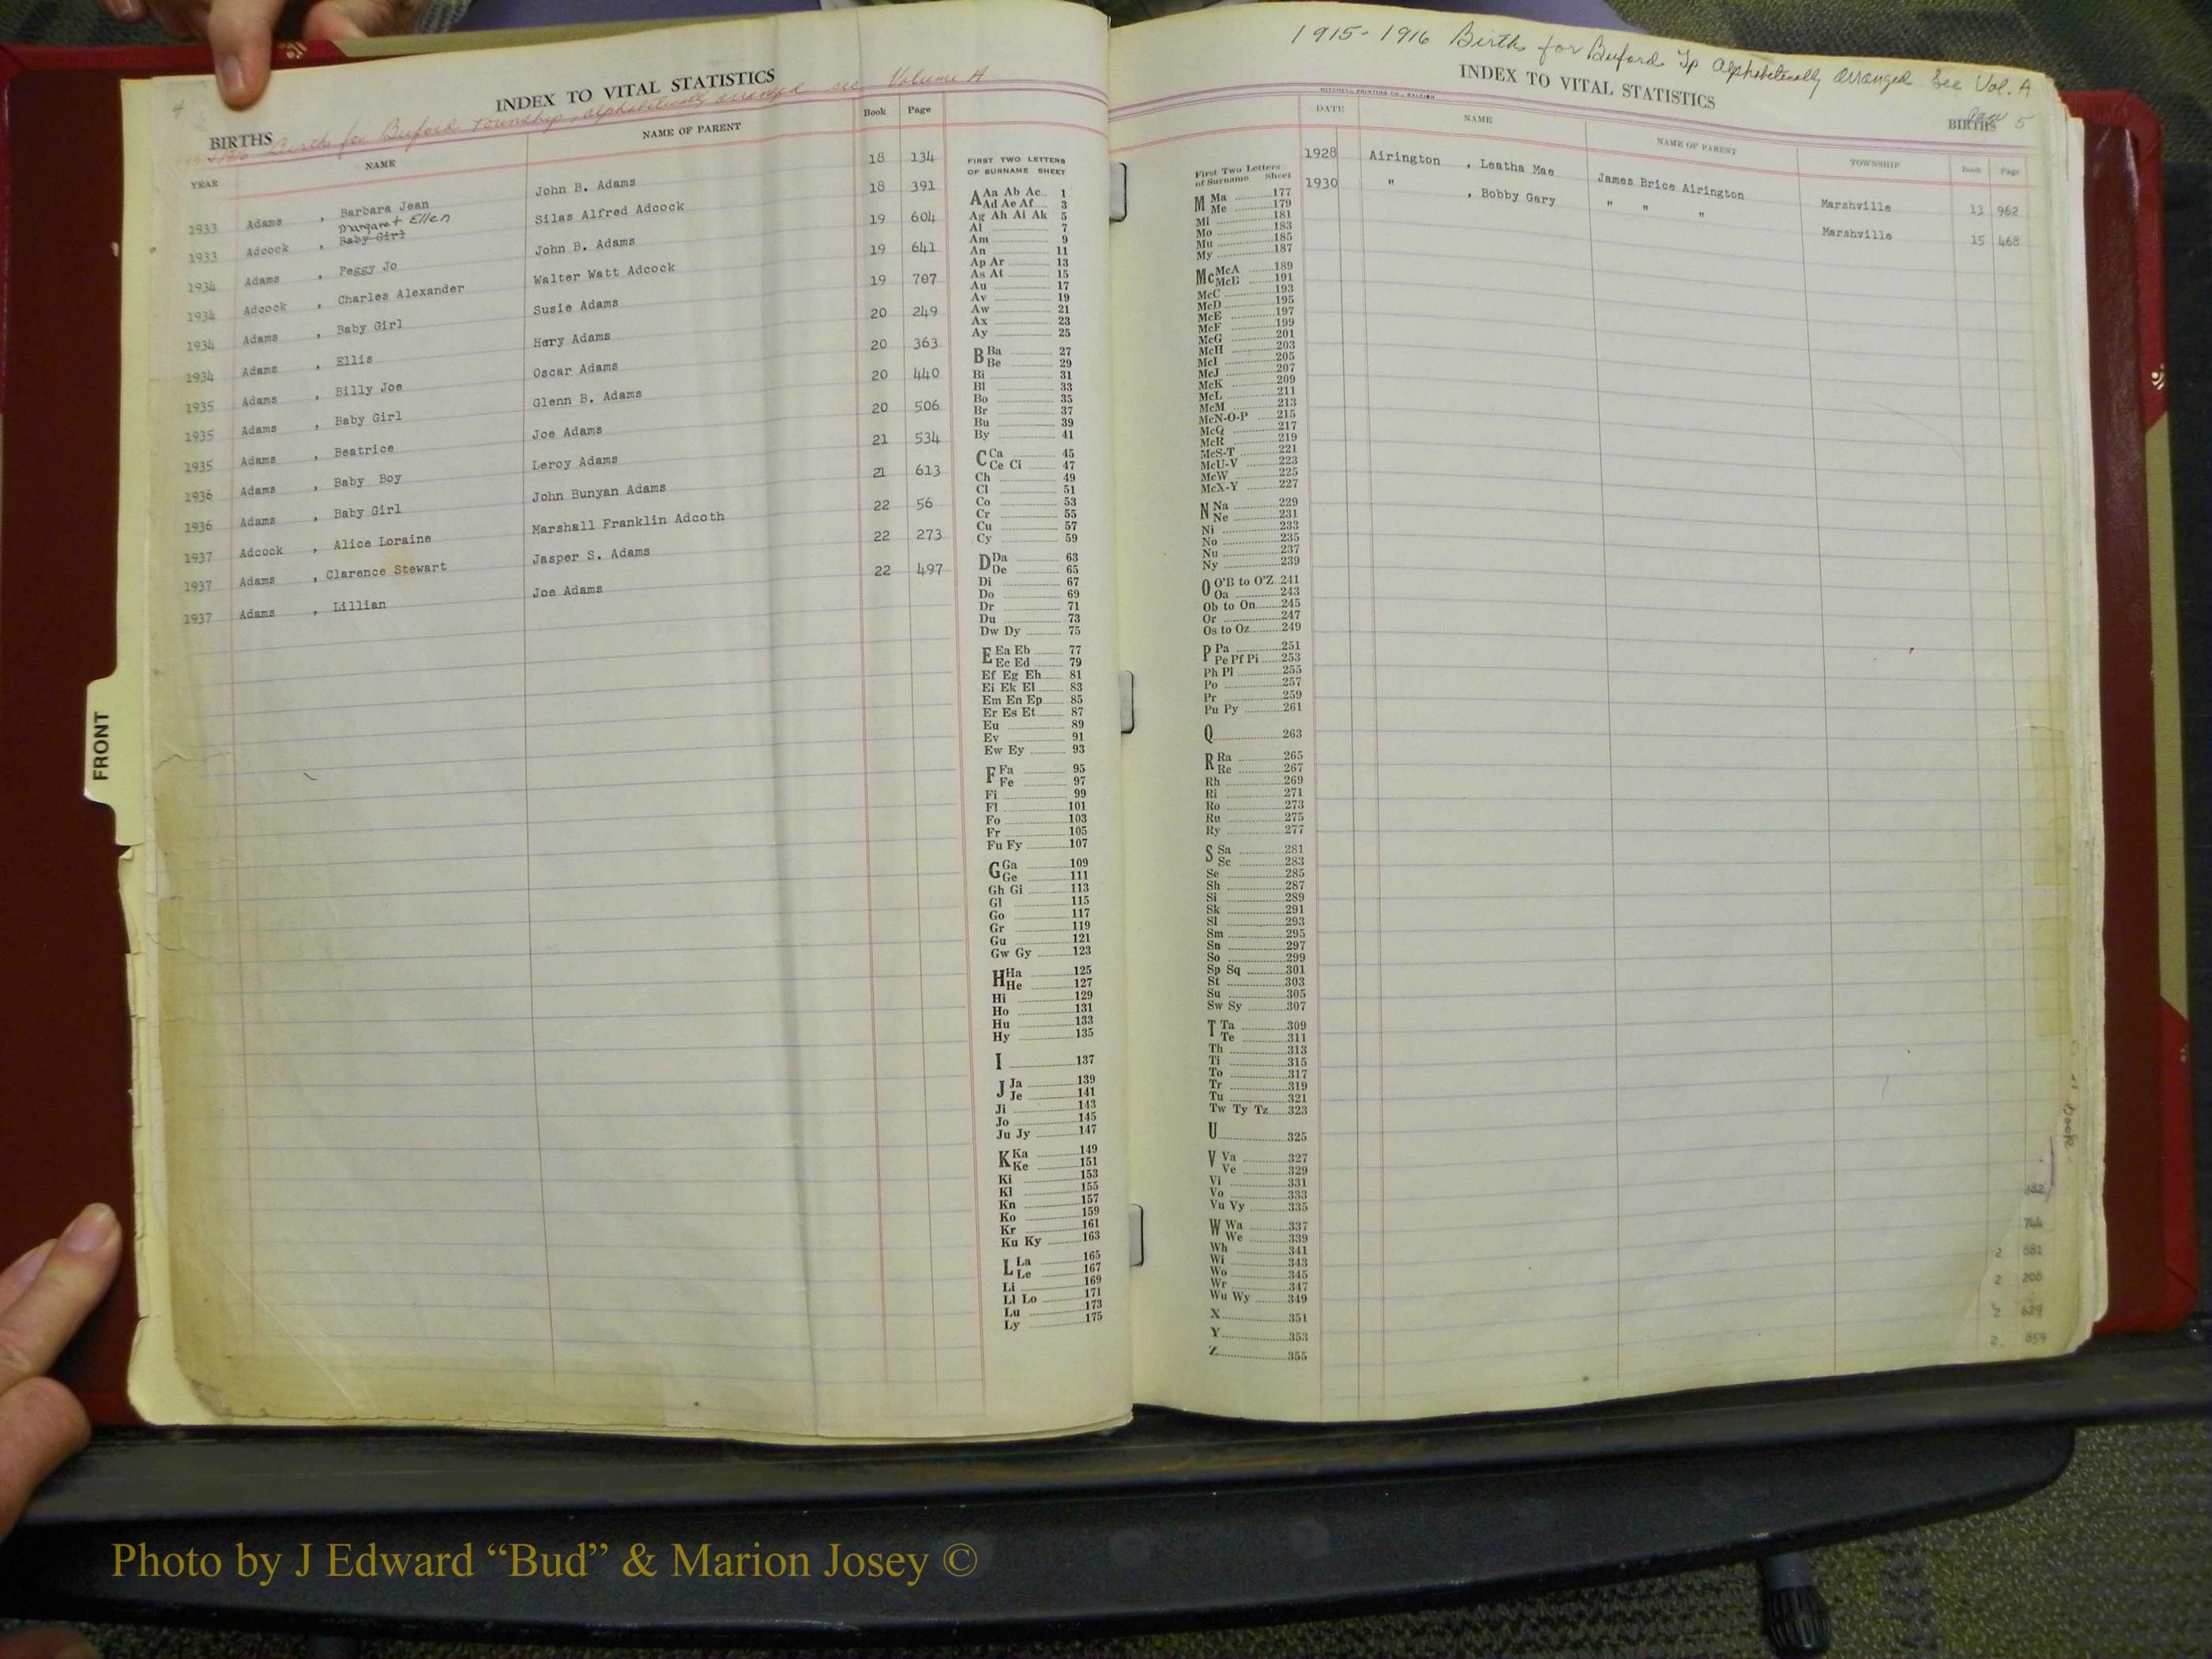 4
INDEX TO VITAL STATISTICS
Birth for Buford Township, alphabetically arranged see Volume A
BIRTHS
YEAR NAME NAME OF PARENT Book Page
1933 Adams , Barbara Jean John B. Adams 18 134
Margaret Ellen
1933 Adcock , Baby Girl Silas Alfred Adcock 18 391
1934 Adams , Peggy Jo John B. Adams 19 604
1934 Adcock , Charles Alexander Walter Watt Adcock 19 641
1934 Adams , Baby Girl Susie Adams 19 707
1934 Adams , Ellis Hery Adams 20 249
1935 Adams , Billy Joe Oscar Adams 20 363
1935 Adams , Baby Girl Glenn B. Adams 20 440
1935 Adams , Beatrice Joe Adams 20 506
1936 Adams , Baby Boy Leroy Adams 21 534
1936 Adams , Baby Girl John Bunyan Adams 21 613
1937 Adcock , Alice Loraine Marshall Franklin Adcoth 22 56
1937 Adams , Clarence Stewart Jasper S. Adams 22 273
1937 Adams , Lillian Joe Adams 22 497
FRONT
FIRST TWO LETTERS
OF SURNAME SHEET
A Aa Ab Ac 1
Ad Ae Af 3
Ag Ah Ai Ak 5
Al 7
Am 9
An 11
Ap Ar 13
As At 15
Au 17
Av 19
Aw 21
Ax 23
Ay 25
B Ba 27
Be 29
Bi 31
Bl 33
Bo 35
Br 37
Bu 39
By 41
C Ca 45
Ce Ci 47
Ch 49
Cl 51
Co 53
Cr 55
Cu 57
Cy 59
D Da 63
De 65
Di 67
Do 69
Dr 71
Du 73
Dw Dy 75
E Ea Eb 77
Ec Ed 79
Ef Eg Eh 81
Ei Ek El 83
Em En Ep 85
Er Es Et 87
Eu 89
Ev 91
Ew Ey 93
F Fa 95
Fe 97
Fi 99
Fl 101
Fo 103
Fr 105
Fu Fy 107
G Ga 109
Ge 111
Gh Gi 113
Gl 115
Go 117
Gr 119
Gu 121
Gw Gy 123
H Ha 125
He 127
Hi 129
Ho 131
Hu 133
Hy 135
I 137
J Ja 139
Je 141
Ji 143
Jo 145
Ju Jy 147
K Ka 149
Ke 151
Ki 153
Kl 155
Kn 157
Ko 159
Kr 161
Ku Ky 163
L La 165
Le 167
Li 169
Ll Lo 171
Lu 173
Ly 175
1915-1916 Births for Buford Tp Alphabetically arranged See Vol. A
Page 5
INDEX TO VITAL STATISTICS
MITCHELL PRINTING CO., RALEIGH
BIRTHS
DATE NAME NAME OF PARENT TOWNSHIP Book Page
1928 Airington , Leatha Mae James Brice Airington Marshville 13 962
1930 " , Bobby Gary " " " Marshville 15 468
First Two Letters
of Surname Sheet
M Ma 177
Me 179
Mi 181
Mo 183
Mu 185
My 187
Mc McA 189
McB 191
McC 193
McD 195
McE 197
McF 199
McG 201
McH 203
McI 205
McJ 207
McK 209
McL 211
McM 213
McN-O-P 215
McQ 217
McR 219
McS-T 221
McU-V 223
McW 225
McX-Y 227
N Na 229
Ne 231
Ni 233
No 235
Nu 237
Ny 239
O O'B to O'Z 241
Oa 243
Ob to On 245
Or 247
Os to Oz 249
P Pa 251
Pe Pf Pi 253
Ph Pl 255
Po 257
Pr 259
Pu Py 261
Q 263
R Ra 265
Re 267
Rh 269
Ri 271
Ro 273
Ru 275
Ry 277
S Sa 281
Sc 283
Se 285
Sh 287
Si 289
Sk 291
Sl 293
Sm 295
Sn 297
So 299
Sp Sq 301
St 303
Su 305
Sw Sy 307
T Ta 309
Te 311
Th 313
Ti 315
To 317
Tr 319
Tu 321
Tw Ty Tz 323
U 325
V Va 327
Ve 329
Vi 331
Vo 333
Vu Vy 335
W Wa 337
We 339
Wh 341
Wi 343
Wo 345
Wr 347
Wu Wy 349
X 351
Y 353
Z 355
744
2 551
2 208
2 629
2 859
Photo by J Edward “Bud” & Marion Josey ©